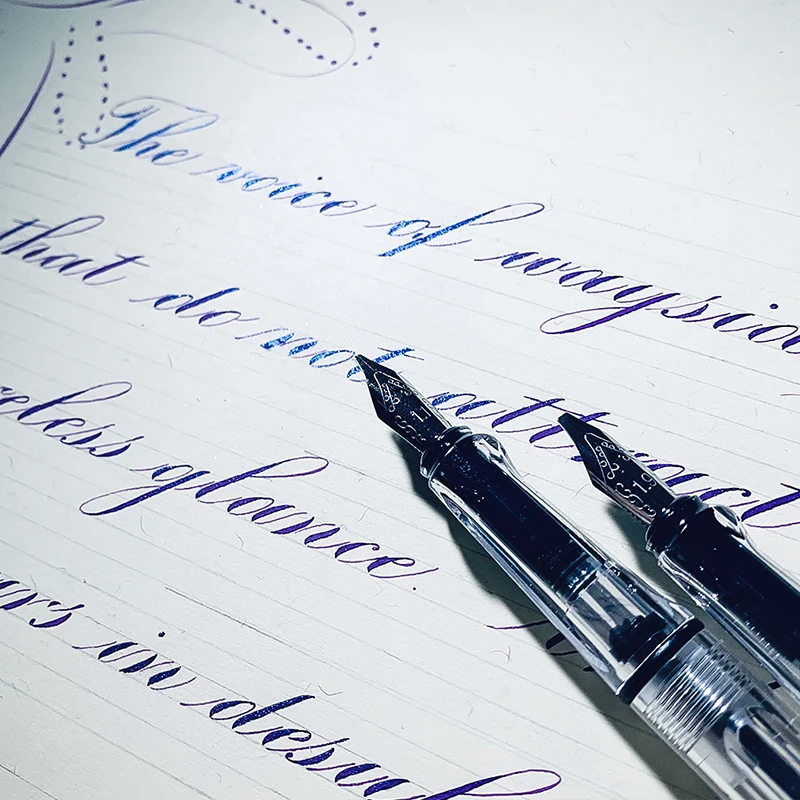 The voice of waysid
that do not attract
reless glance.
ars in desul